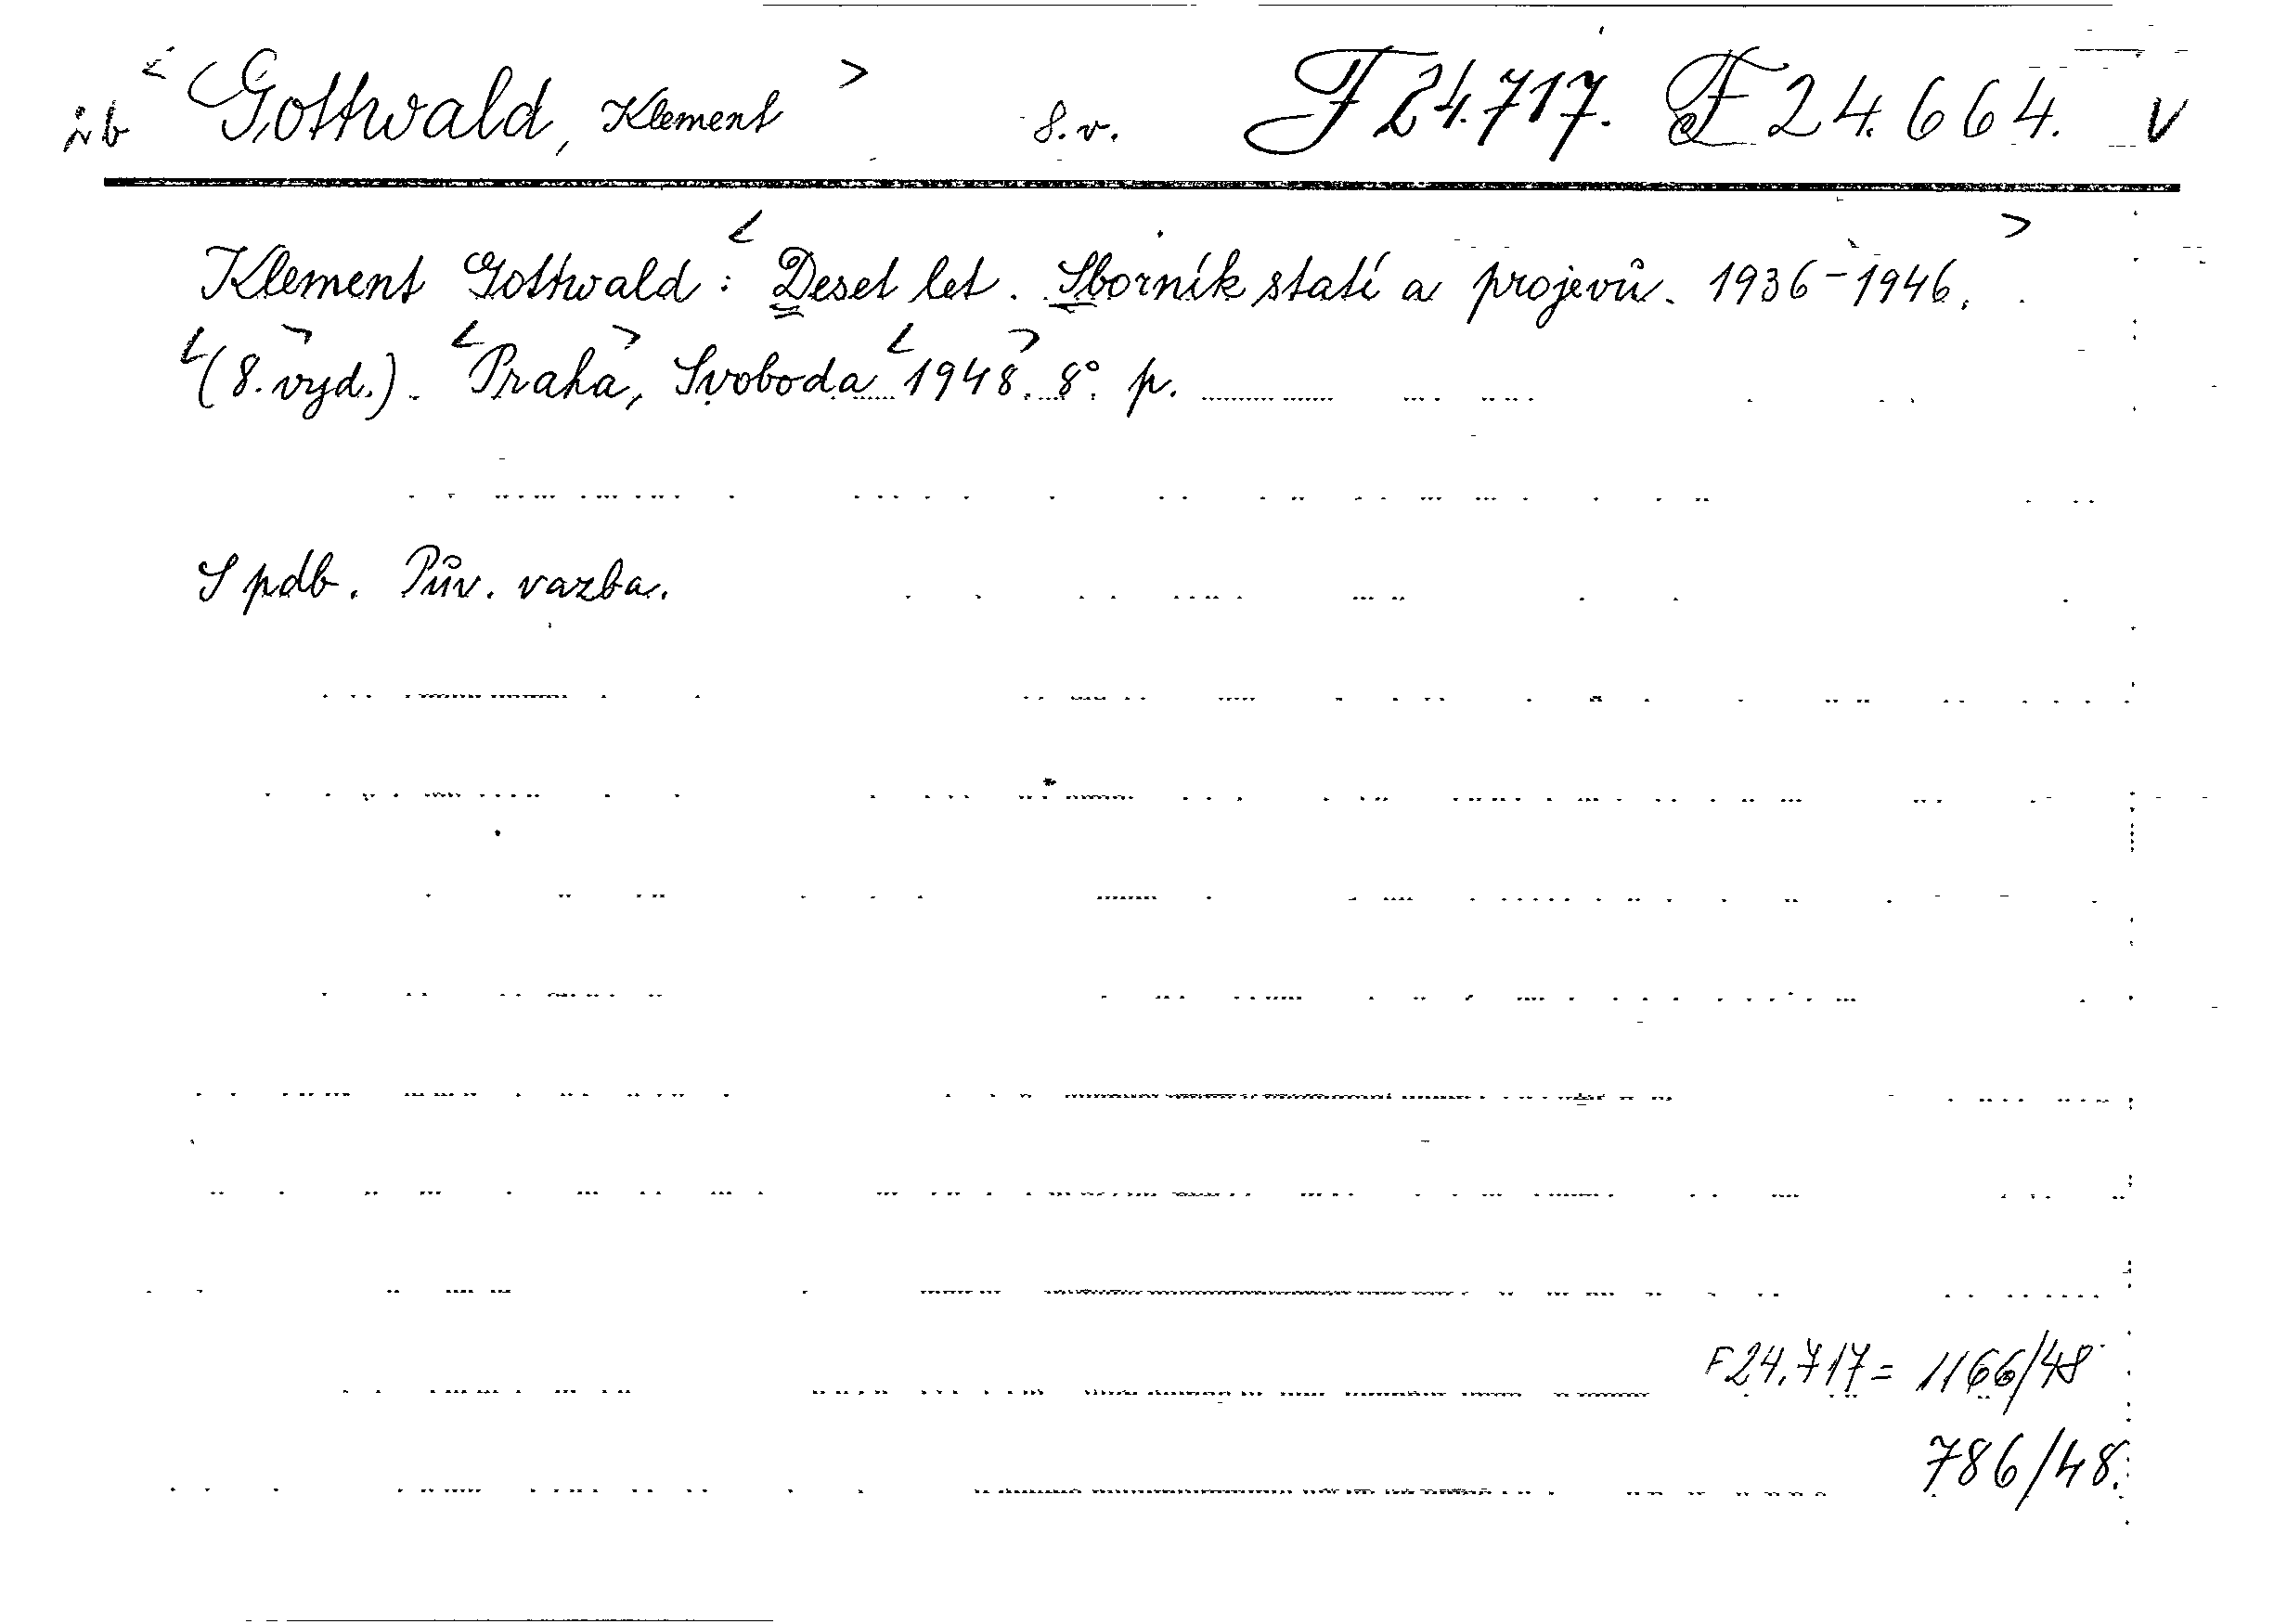 < Gottwald, Klement > 8.v. F 24.717. F 24.664. V
Klement Gottwald : < Deset let. Sborník statí a projevů. 1936-1946. >
< (8. vyd.) > . < Praha >, Svoboda < 1948 >. 8°. p.
S pdb. Pův. vazba.
F 24.717 = 1166/48
786/48.